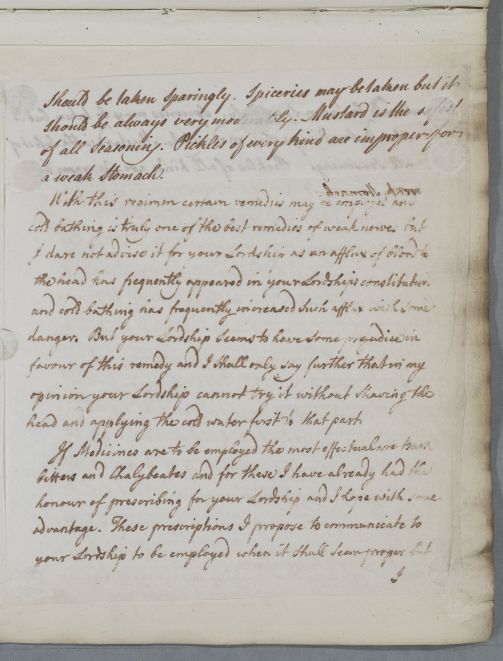 should be taken sparingly. Spiceries may be taken but it
should be always very mod tly. Mustard is the safest
of all Seasoning. Pickles of every kind are improper for
a weak Stomach.
With this regimen certain remedies may be employed and
cold bathing is truly one of the best remedies of weak nerves but
I dare not advise it for your Lordship as an afflux of blood to
the head has frequently appeared in your Lordships constitution
and cold bathing has frequently increased such afflux with some
danger. But your Lordship seems to have some prejudice in
favour of this remedy and I shall only say further that in my
opinion your Lordship cannot try it without shaving the
head and applying the cold water first to that part.
If Medicines are to be employed the most effectual are
bitters and Chalybeates and for these I have already had the
honour of prescribing for your Lordship and I hope with some
advantage. These prescriptions I propose to communicate to
your Lordship to be employed when it shall seem proper but
I